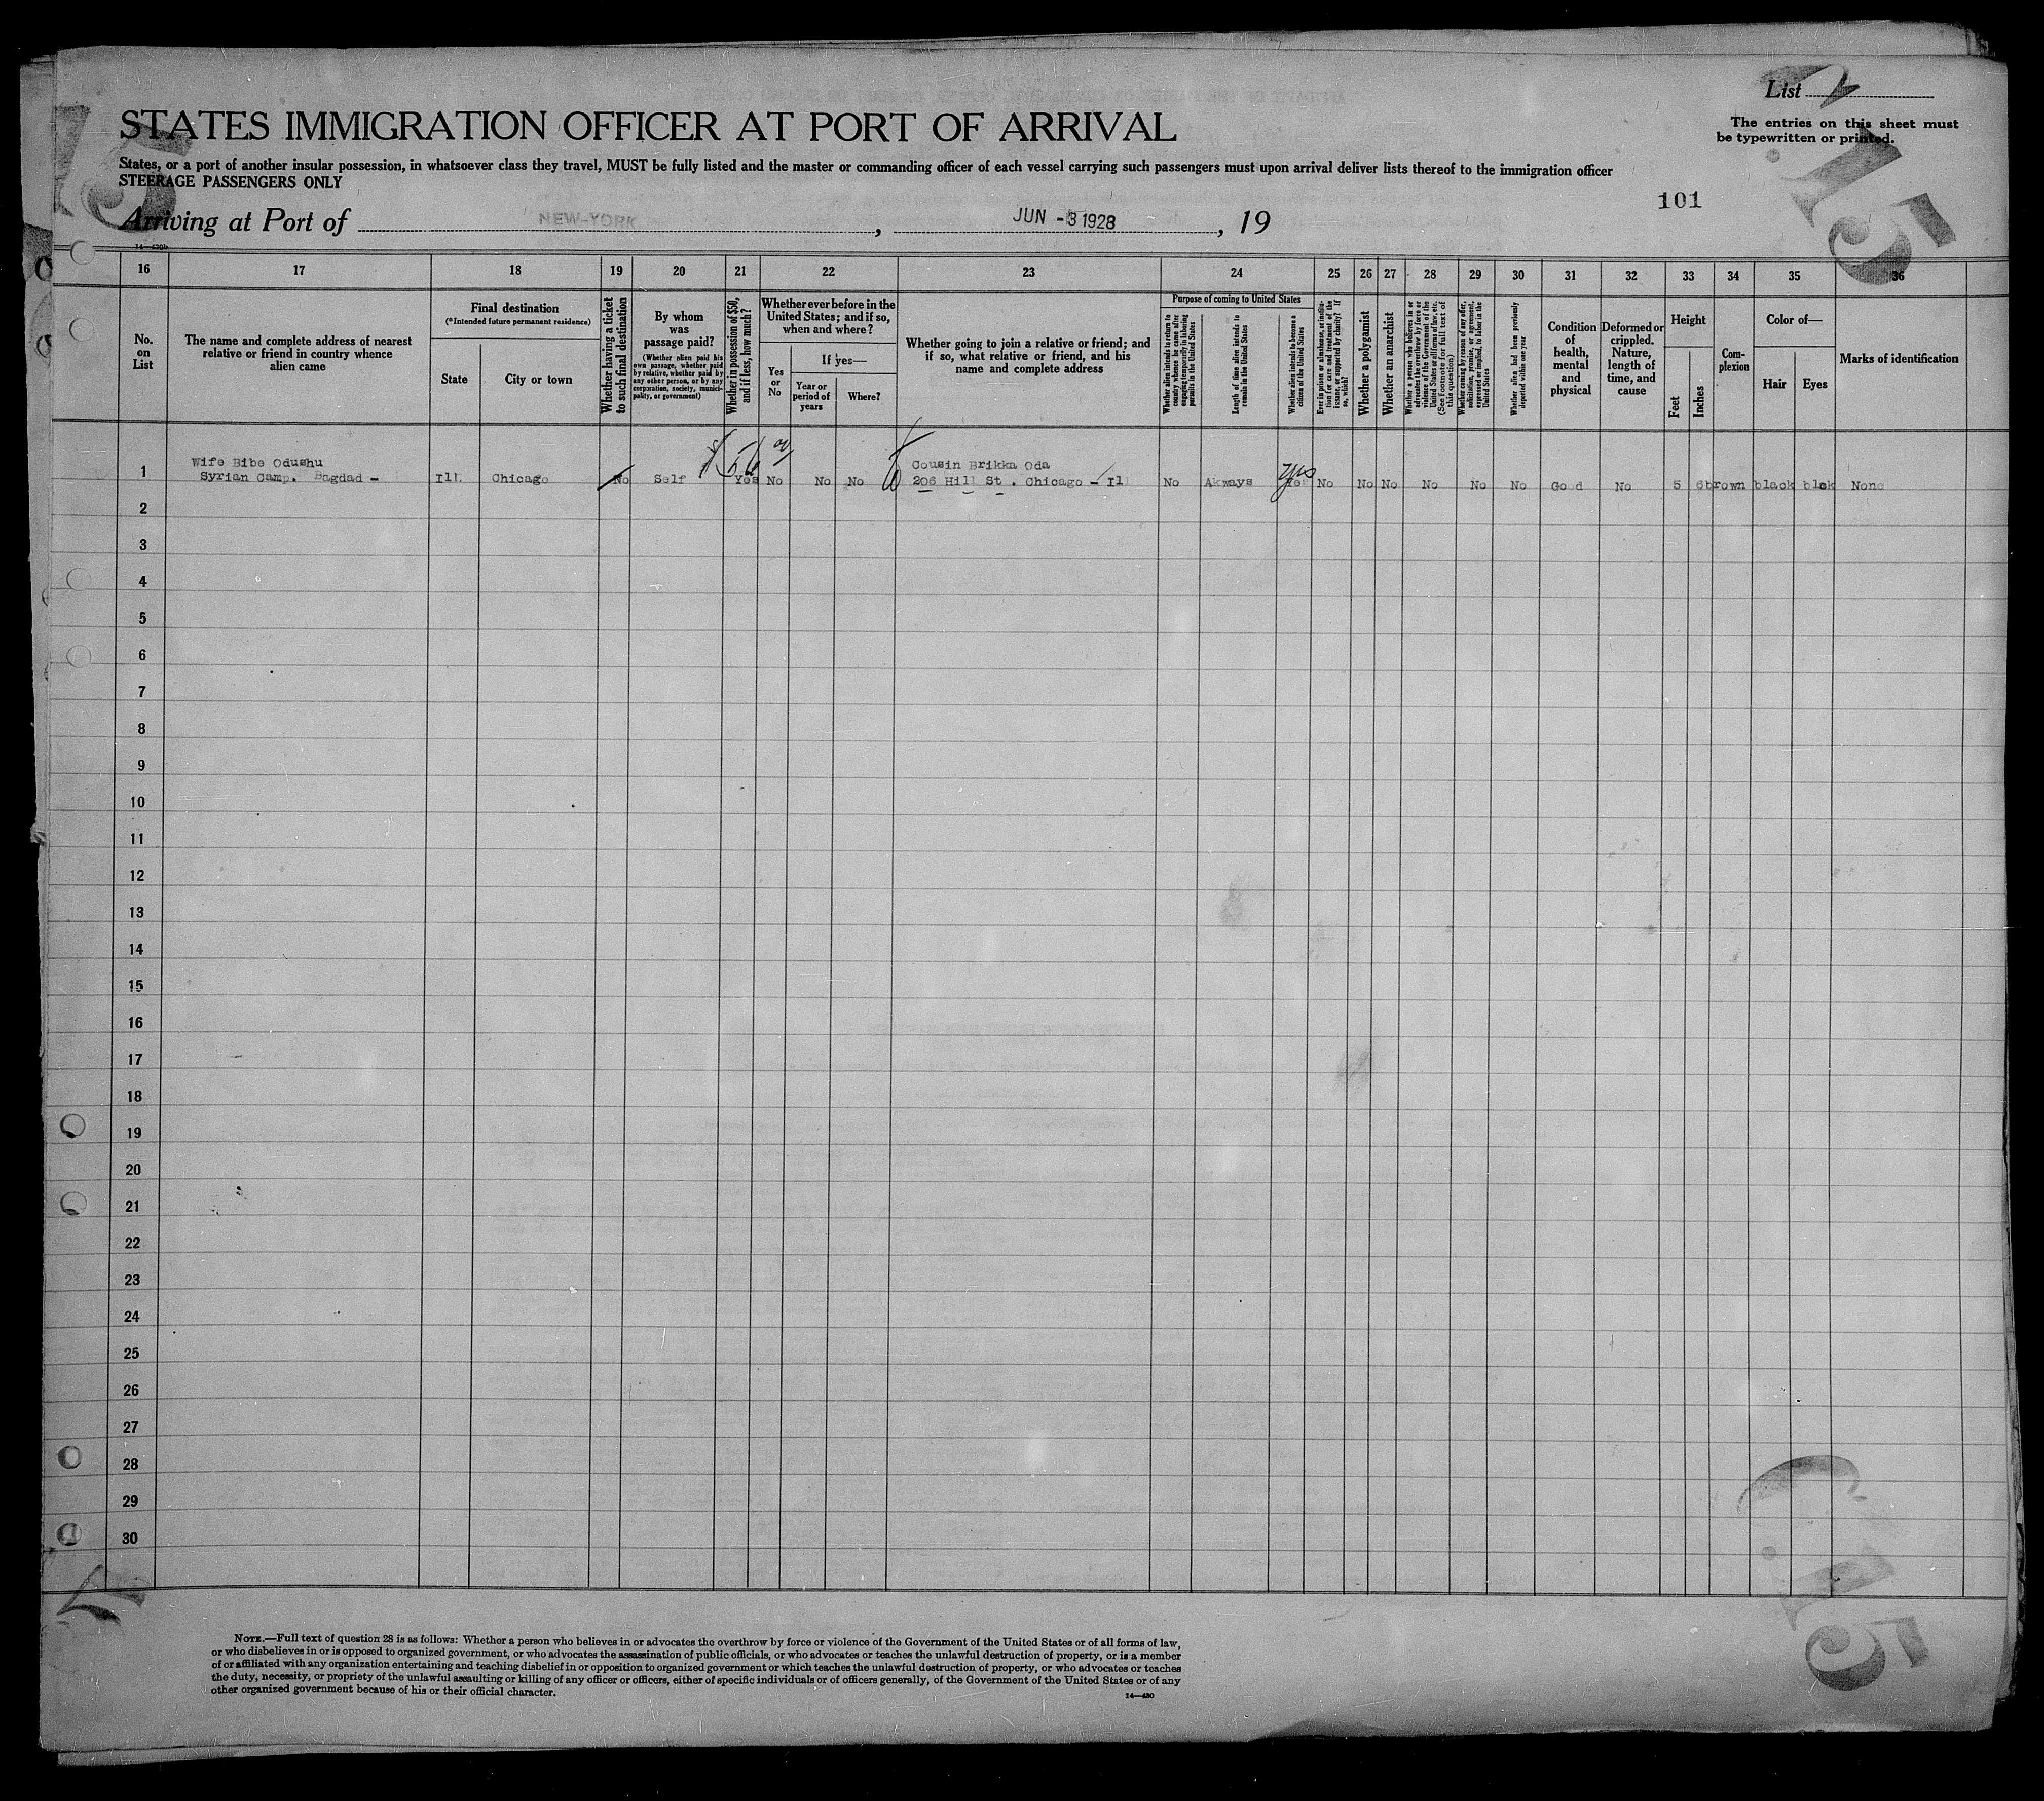 List 2
The entries on this sheet must
be typewritten or printed.
STATES IMMIGRATION OFFICER AT PORT OF ARRIVAL
States, or a port of another insular possession, in whatsoever class they travel, MUST be fully listed and the master or commanding officer of each vessel carrying such passengers must upon arrival deliver lists thereof to the immigration officer
STEERAGE PASSENGERS ONLY
15
15
101
Arriving at Port of NEW-YORK, JUN -3 1928, 19
14—430b
16 17 18 19 20 21 22 23 24 25 26 27 28 29 30 31 32 33 34 35 36
No.
on
List
The name and complete address of nearest
relative or friend in country whence
alien came
Final destination
(*Intended future permanent residence)
State
City or town
Whether having a ticket
to such final destination
By whom
was
passage paid?
(Whether alien paid his
own passage, whether paid
by relative, whether paid by
any other person, or by any
corporation, society, munici-
pality, or government)
Whether in possession of $50,
and if less, how much?
Whether ever before in the
United States; and if so,
when and where?
Yes
or
No
If yes—
Year or
period of
years
Where?
Whether going to join a relative or friend; and
if so, what relative or friend, and his
name and complete address
Purpose of coming to United States
Whether alien intends to return to
country whence he came after
engaging temporarily in laboring
pursuits in the United States
Length of time alien intends to
remain in the United States
Whether alien intends to become a
citizen of the United States
Ever in prison or almshouse, or institu-
tion for care and treatment of the
insane, or supported by charity? If
so, which?
Whether a polygamist
Whether an anarchist
Whether a person who believes in or
advocates the overthrow by force or
violence of the Government of the
United States or all forms of law, etc.
(See footnote for full text of
this question)
Whether coming by reason of any offer,
solicitation, promise, or agreement,
expressed or implied, to labor in the
United States
Whether alien had been previously
deported within one year
Condition
of
health,
mental
and
physical
Deformed or
crippled.
Nature,
length of
time, and
cause
Height
Feet
Inches
Com-
plexion
Color of—
Hair
Eyes
Marks of identification
Wife Bibe Odushu Cousin Brikka Oda
1 Syrian Camp. Bagdad - Ill. Chicago No Self Yes No No No 206 Hill St . Chicago - Il No Akways yes No No No No No No Good No 5 6 brown black blak None
2
3
4
5
6
7
8
9
10
11
12
13
14
15
16
17
18
19
20
21
22
23
24
25
26
27
28
29
30
15
NOTE.—Full text of question 28 is as follows: Whether a person who believes in or advocates the overthrow by force or violence of the Government of the United States or of all forms of law,
or who disbelieves in or is opposed to organized government, or who advocates the assassination of public officials, or who advocates or teaches the unlawful destruction of property, or is a member
of or affiliated with any organization entertaining and teaching disbelief in or opposition to organized government or which teaches the unlawful destruction of property, or who advocates or teaches
the duty, necessity, or propriety of the unlawful assaulting or killing of any officer or officers, either of specific individuals or of officers generally, of the Government of the United States or of any
other organized government because of his or their official character.
14—430